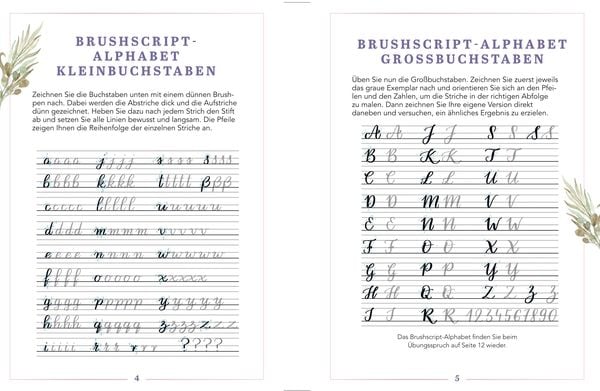 BRUSHSCRIPT-
ALPHABET
KLEINBUCHSTABEN
Zeichnen Sie die Buchstaben unten mit einem dünnen Brush-
pen nach. Dabei werden die Abstriche dick und die Aufstriche
dünn gezeichnet. Heben Sie dazu nach jedem Strich den Stift
ab und setzen Sie alle Linien bewusst und langsam. Die Pfeile
zeigen Ihnen die Reihenfolge der einzelnen Striche an.
a a a a j j j j s s s s s s s
b b b b k k k k t t t t t ß ß ß
c c c c c l l l l l u u u u u
d d d d m m m m v v v v v
e e e e n n n n w w w w w
f f f f o o o o o x x x x x
g g g g p p p p p y y y y y
h h h h q q q q q z z z z z z z
i i i i i r r r r r r ? ? ? ?
4
BRUSHSCRIPT-ALPHABET
GROSSBUCHSTABEN
Üben Sie nun die Großbuchstaben. Zeichnen Sie zuerst jeweils
das graue Exemplar nach und orientieren Sie sich an den Pfei-
len und den Zahlen, um die Striche in der richtigen Abfolge
zu malen. Dann zeichnen Sie Ihre eigene Version direkt
daneben und versuchen, ein ähnliches Ergebnis zu erzielen.
A A J J S S S S
B B K K T T
C C L L U U
D D M M V V
E E N N W W
F F O O X X
G G P P Y Y
H H Q Q Z Z Z Z
I I R R 1 2 3 4 5 6 7 8 9 0
Das Brushscript-Alphabet finden Sie beim
Übungsspruch auf Seite 12 wieder.
5